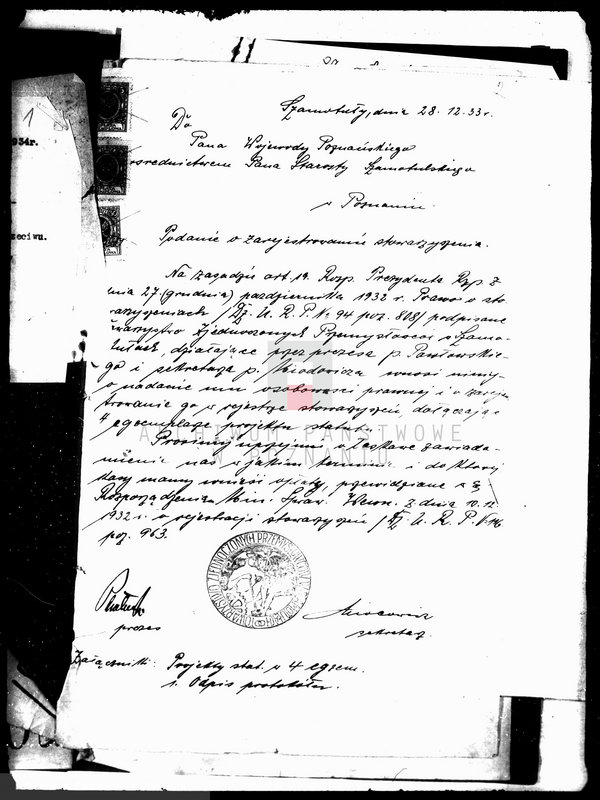 1
934r.
zeciwu.
Szamotuły, dnia 28. 12. 33r.
Do
Pana Wojewody Poznańskiego
pośrednictwem Pana Starosty Szamotulskiego
w Poznaniu.
Podanie o zarejestrowanie stowarzyszenia.
Na zasadzie art. 19. Rozp. Prezydenta Rzp. z
dnia 27 (grudnia) października 1932 r. Prawo o sto-
warzyszeniach / Dz. U. R. P. Nr 94 poz. 808/ podpisane
Towarzystwo Zjednoczonych Przemysłowców w Szamo-
tułach, działające przez prezesa p.
go i sekretarza p. Miodowicza wnosi
o nadanie mu osobowości prawnej i o zareje-
strowanie go w rejestrze stowarzyszeń, dołączając
4 egzemplarze projektu statutu.
Prosimy uprzejmie o łaskawe zawiado-
mienie nas w jakim terminie i do której
kasy mamy wnieść opłaty, przewidziane w §
Rozporządzenia Min. Spraw. Wewn. z dnia 10. 12.
1932 r. o rejestracji stowarzyszeń / Dz. U. R. P.
poz. 963.
TOWARZYSTWO ZJEDNOCZONYCH PRZEMYSŁOWCÓW
prezes
Miodowicz
sekretarz.
Załączniki: Projekty stat. w 4 egzem.
1. Odpis protokółu.
ARCHIWUM PAŃSTWOWE
W POZNANIU